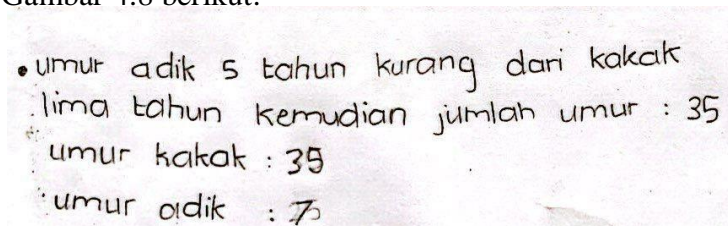 Gambar 4.8 berikut:
• umur adik 5 tahun kurang dari kakak
lima tahun kemudian jumlah umur : 35
umur kakak : 35
umur adik :